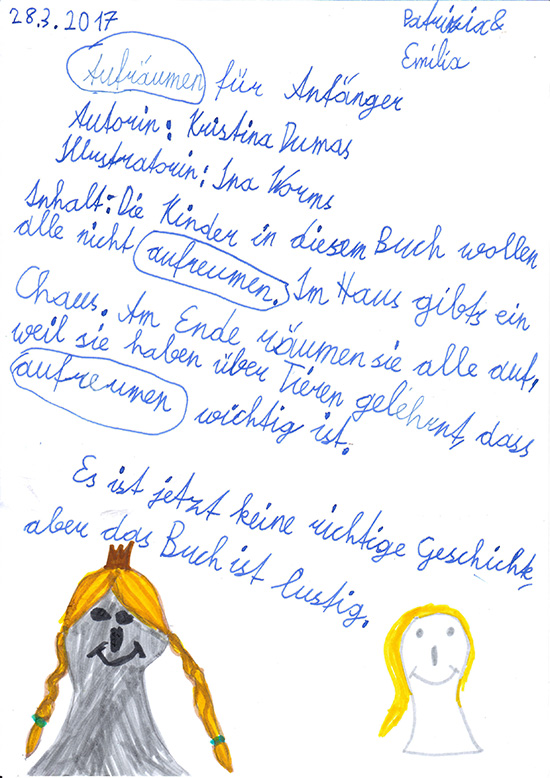 28.3.2017
Patrizia &
Emilia
Aufräumen für Anfänger
Autorin: Kristina Dumas
Illustratorin: Ina Worms
Inhalt: Die Kinder in diesem Buch wollen
alle nicht aufreumen. Im Haus gibts ein
Chaus. Am Ende räumen sie alle auf,
weil sie haben über Tieren gelehrnt, dass
aufreumen wichtig ist.
Es ist jetzt keine richtige Geschichte,
aber das Buch ist lustig.